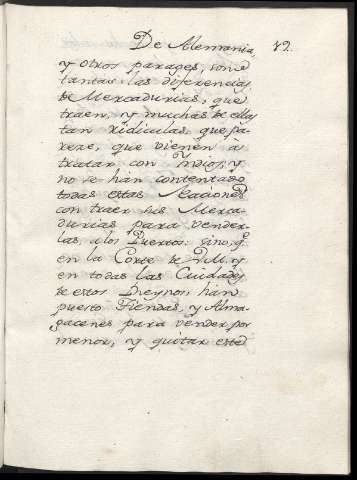 De Alemania, 72.
y otros parages, son
tantas las diferencias
de Mercadurias, que
traen, y muchas de ellas
tan ridiculas, que pa-
rexe, que vienen á
tratar con Yndios, y
no se han contentado
todas estas Naciones
con traer sus Merca-
durias para vender-
las, á los Puertos: sino, q.e
en la Corte de V.M. y
en todas las Ciudades
de estos Reynos, han
puesto Tiendas, y Alma-
gacenes para vender por
menor, y quitar este